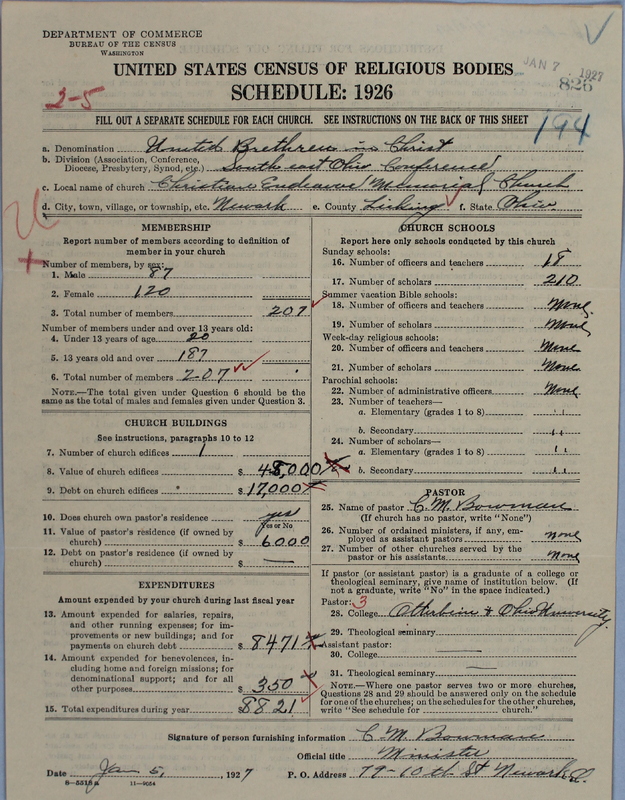 DEPARTMENT OF COMMERCE
BUREAU OF THE CENSUS
WASHINGTON
JAN 7 1927
826
UNITED STATES CENSUS OF RELIGIOUS BODIES
SCHEDULE: 1926
2-5
FILL OUT A SEPARATE SCHEDULE FOR EACH CHURCH. SEE INSTRUCTIONS ON THE BACK OF THIS SHEET
194
a. Denomination United Brethren in Christ
b. Division (Association, Conference, Diocese, Presbytery, Synod, etc.) South east Ohio Conference
c. Local name of church Christian Endeavor Memorial Church
d. City, town, village, or township, etc. Newark e. County Licking f. State Ohio
MEMBERSHIP
Report number of members according to definition of
member in your church
Number of members, by sex:
1. Male 87
2. Female 120
3. Total number of members 207
Number of members under and over 13 years old:
4. Under 13 years of age 20
5. 13 years old and over 187
6. Total number of members 207
NOTE.—The total given under Question 6 should be
same as the total of males and females given under Question 3.
CHURCH BUILDINGS
See instructions, paragraphs 10 to 12
7. Number of church edifices 1
8. Value of church edifices $ 48,000
9. Debt on church edifices $ 17,000
10. Does church own pastor's residence yes
Yes or No
11. Value of pastor's residence (if owned by
church) $ 6000
12. Debt on pastor's residence (if owned by
church) $ —
EXPENDITURES
Amount expended by church during last fiscal year
13. Amount expended for salaries, repairs,
and other running expenses; for im-
provements or new buildings; and for
payments on church debt $ 8471
14. Amount expended for benevolences, in-
cluding home and foreign missions; for
denominational support; and for all
other purposes $ 350
15. Total expenditures during year $ 8821
CHURCH SCHOOLS
Report here only schools conducted by this church
Sunday schools:
16. Number of officers and teachers 18
17. Number of scholars 210
Summer vacation Bible schools:
18. Number of officers and teachers None
19. Number of scholars None
Week-day religious schools:
20. Number of officers and teachers None
21. Number of scholars None
Parochial schools:
22. Number of administrative officers None
23. Number of teachers—
a. Elementary (grades 1 to 8) " "
b. Secondary " "
24. Number of scholars—
a. Elementary (grades 1 to 8) " "
b. Secondary " "
PASTOR
25. Name of pastor C. M. Bowman
(If church has no pastor, write "None")
26. Number of ordained ministers, if any, em-
ployed as assistant pastors none
27. Number of other churches served by the
pastor or his assistants none
If pastor (or assistant pastor) is a graduate of a college or
theological seminary, give name of institution below. (If
not a graduate, write "No" in the space indicated.)
Pastor: 3
28. College Otterbein & Ohio University
29. Theological seminary
Assistant pastor:
30. College —
31. Theological seminary —
NOTE.—Where one pastor serves two or more churches,
Questions 28 and 29 should be answered only on the schedule
for one of the churches; on the schedules for the other churches,
write "See schedule for church."
Signature of person furnishing information C. M. Bowman
Official title Minister
Date Jan 5, 1927 P. O. Address 79-10th St Newark, O.
8-5518a 11-9054